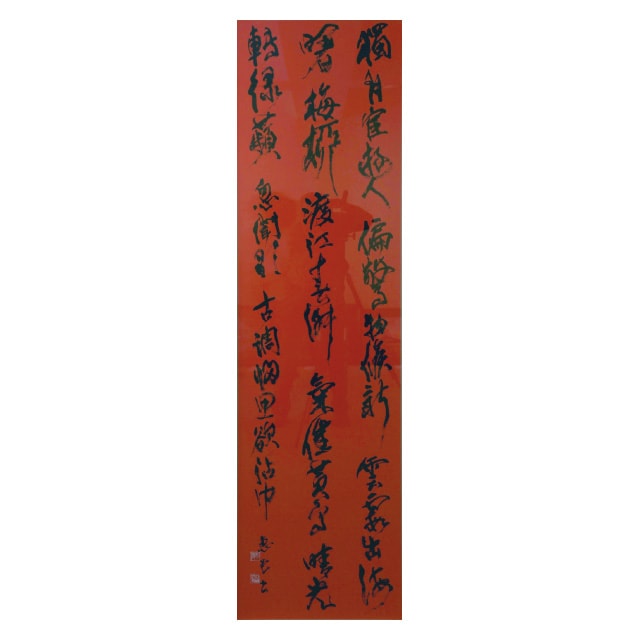 獨有宦遊人偏驚物候新雲霞出海
曙梅柳渡江春淑氣催黃鳥晴光
轉緑蘋忽聞歌古調歸思欲沾巾